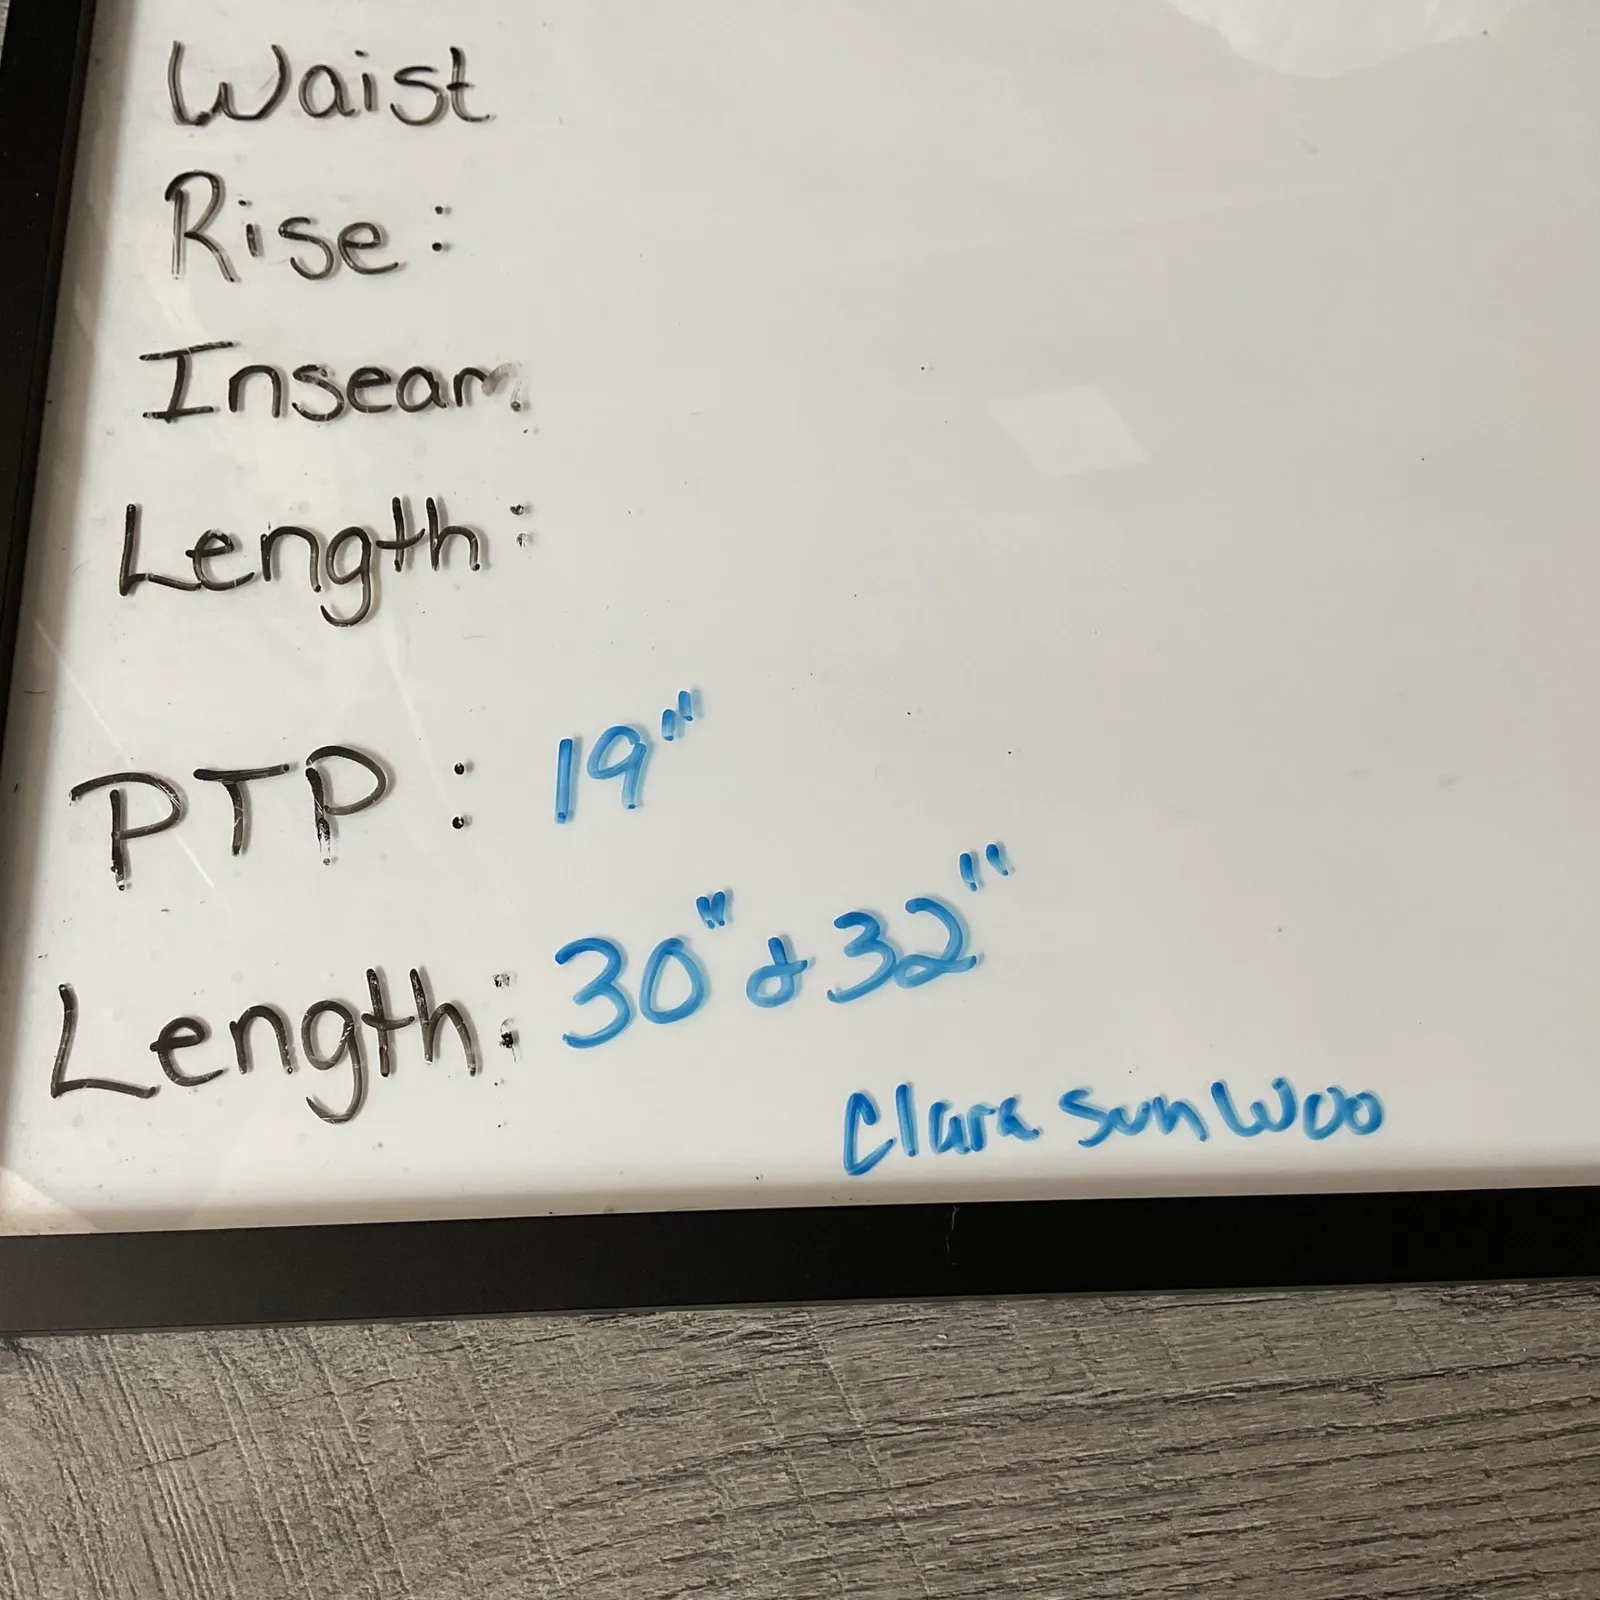 Waist
Rise:
Inseam
Length:
PTP: 19"
Length: 30" & 32"
Clara Sun Woo